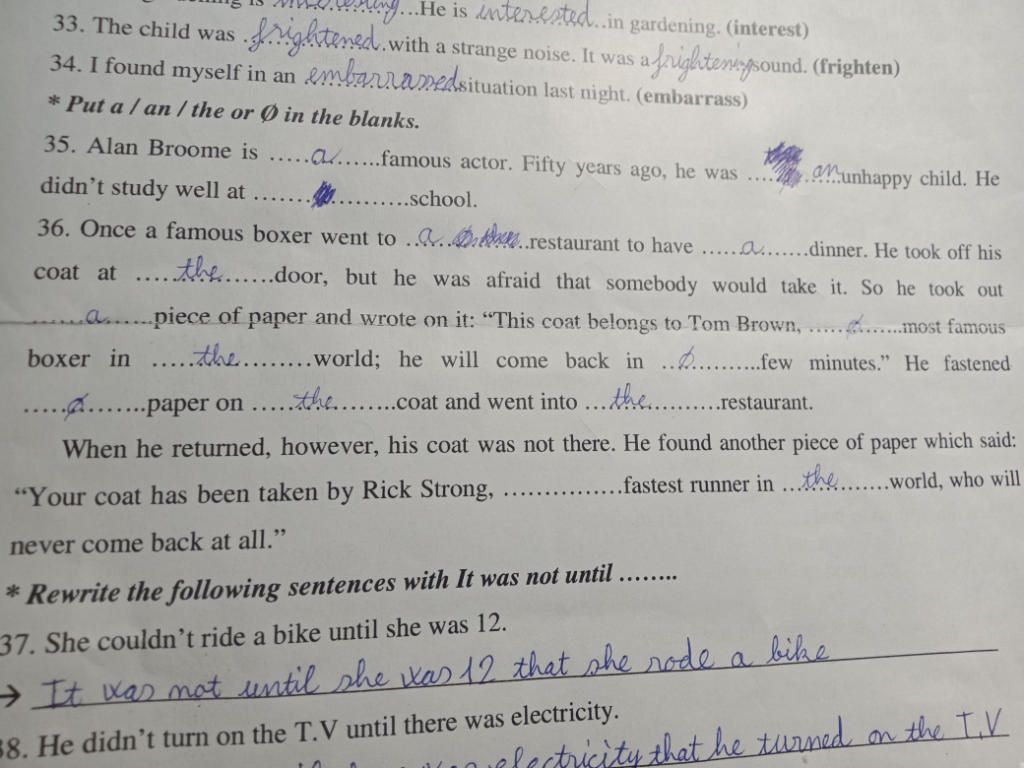 is interesting...He is interested..in gardening. (interest)
33. The child was .frightened.with a strange noise. It was a frighteningsound. (frighten)
34. I found myself in an embarrassedsituation last night. (embarrass)
* Put a / an / the or Ø in the blanks.
35. Alan Broome is .....a......famous actor. Fifty years ago, he was .... an....unhappy child. He
didn't study well at .................school.
36. Once a famous boxer went to ..a.. ..restaurant to have .....a.......dinner. He took off his
coat at .....the.......door, but he was afraid that somebody would take it. So he took out
......a......piece of paper and wrote on it: "This coat belongs to Tom Brown, .....Ø.......most famous
boxer in .....the.........world; he will come back in ..Ø..........few minutes." He fastened
.....Ø........paper on .....the........coat and went into ...the..........restaurant.
When he returned, however, his coat was not there. He found another piece of paper which said:
"Your coat has been taken by Rick Strong, ................fastest runner in ...the........world, who will
never come back at all."
* Rewrite the following sentences with It was not until ........
37. She couldn't ride a bike until she was 12.
→ It was not until she was 12 that she rode a bike
38. He didn't turn on the T.V until there was electricity.
electricity that he turned on the T.V